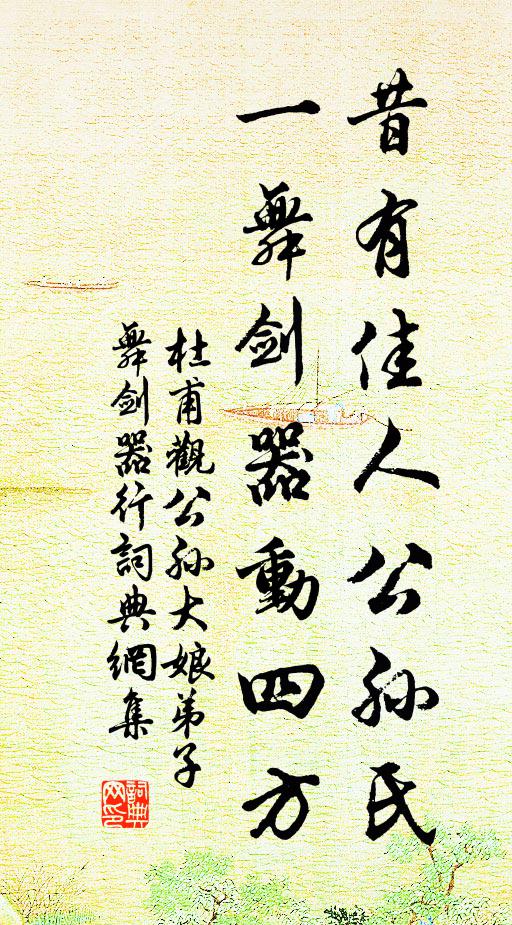 昔有佳人公孫氏
一舞劍器動四方
杜甫觀公孫大娘弟子
舞劍器行詞典網集
詞典
网印